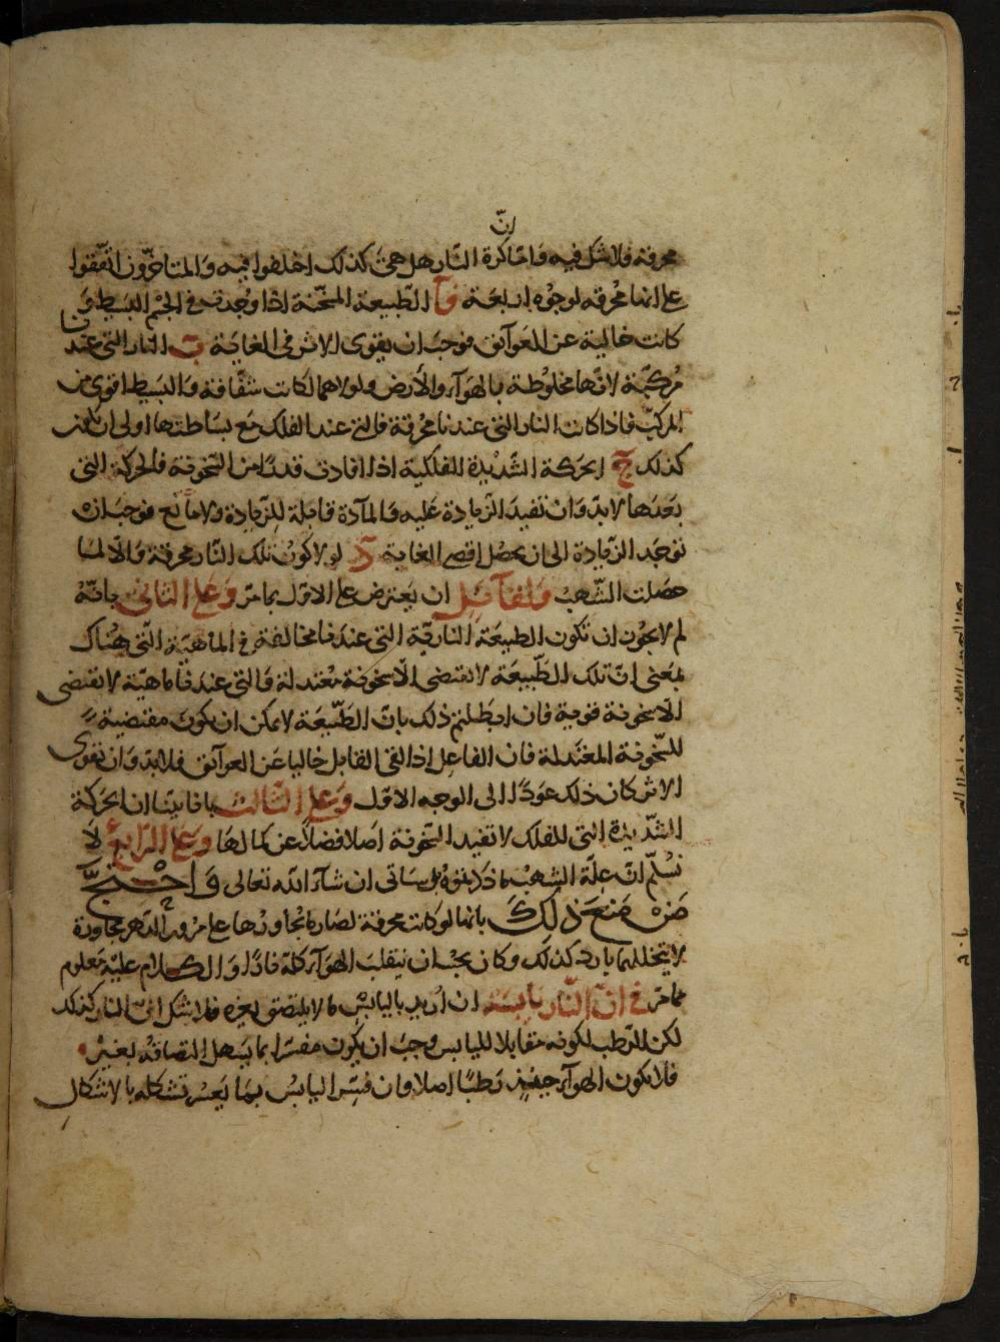 انّ
محرقة فلا شك فيه وامّا كرة النّار هل هي كذلك اختلفوا فيه والمتاخّرون اتّفقوا
على انها محرقة لوجوه اربعة آ الطّبيعة المسخّنة اذا وُجدت في الجرم البسيط و
كانت خالية عن العوائق فوجب ان يقوى الاثر في الغاية ب النار التي عندنا
مركبّة لانّها مخلوطة بالهوآء والأرض ولولاهما لكانت شفّافة والبسيط اقوى من
المركّب فاذا كانت النار التي عندنا محرقة فالتي عند الفلك مع بساطتها اولى ان تكون
كذلك ج الحركة الشّديدة الفلكية اذا افادت قدرًا من السّخونة فالحركة التي
بعدها لا بدّ وان تفيد الزّيادة عليه والمآدة قابلة للزّيادة ولا مانع فوجب ان
توجد الزّيادة الى ان يحصل اقصى الغاية د لو لا كون تلك النّار محرقة والّا لما
حصلت الشّهب ولقآئل ان يعترض على الاوّل بما مرّ وعلى الثاني بانّه
لم لا يجوز ان تكون الطبيعة الناريّة التي عندنا مخالفة في الماهيّة التي هناك
بمعنى انّ تلك الطّبيعة لا تقتضي الّا سخونة معتدلة والتي عندنا ماهيّة لا تقتضي
الّا سخونة قوية فان ابطلتم ذلك بانّ الطّبيعة لا يمكن ان تكون مقتضية
للسّخونة المعتدلة فان الفاعل اذا لقي القابل خاليا عن العوآئق فلا بدّ وان يقوى
الاثر كان ذلك عودًا الى الوجه الاوّل وعلى الثالث بانا بيّنا ان الحركة
الشّديدة التي للفلك لا تفيد السّخونة اصلا فضلاً عن كمالها وعلى الرّابع لا
نسلّم انّ علّة الشهب ما ذكرتموه بل سياتي ان شآء الله تعالى واحتجّ
من منع ذلك بانها لو كانت محرقة لصار ما يجاورها على مرور الدّهر مجاورة
لا يتخللها بارد كذلك وكان يجب ان ينقلب الهوآء كلّه نارًا والكلام عليه معلوم
مما مرّ في انّ النّار يابسة ان اريد باليابس ما لا يلتصق بغيره فلا شكّ انّ النار كذلك
لكن الرّطب لكونه مقابلا لليابس وجب ان يكون مفسّرا بما يسهل التصاقه بغيره
فلا يكون الهوآء حينئذ رطبًا اصلا وان فسّر اليابس بما يعسر تشكله بالاشكال